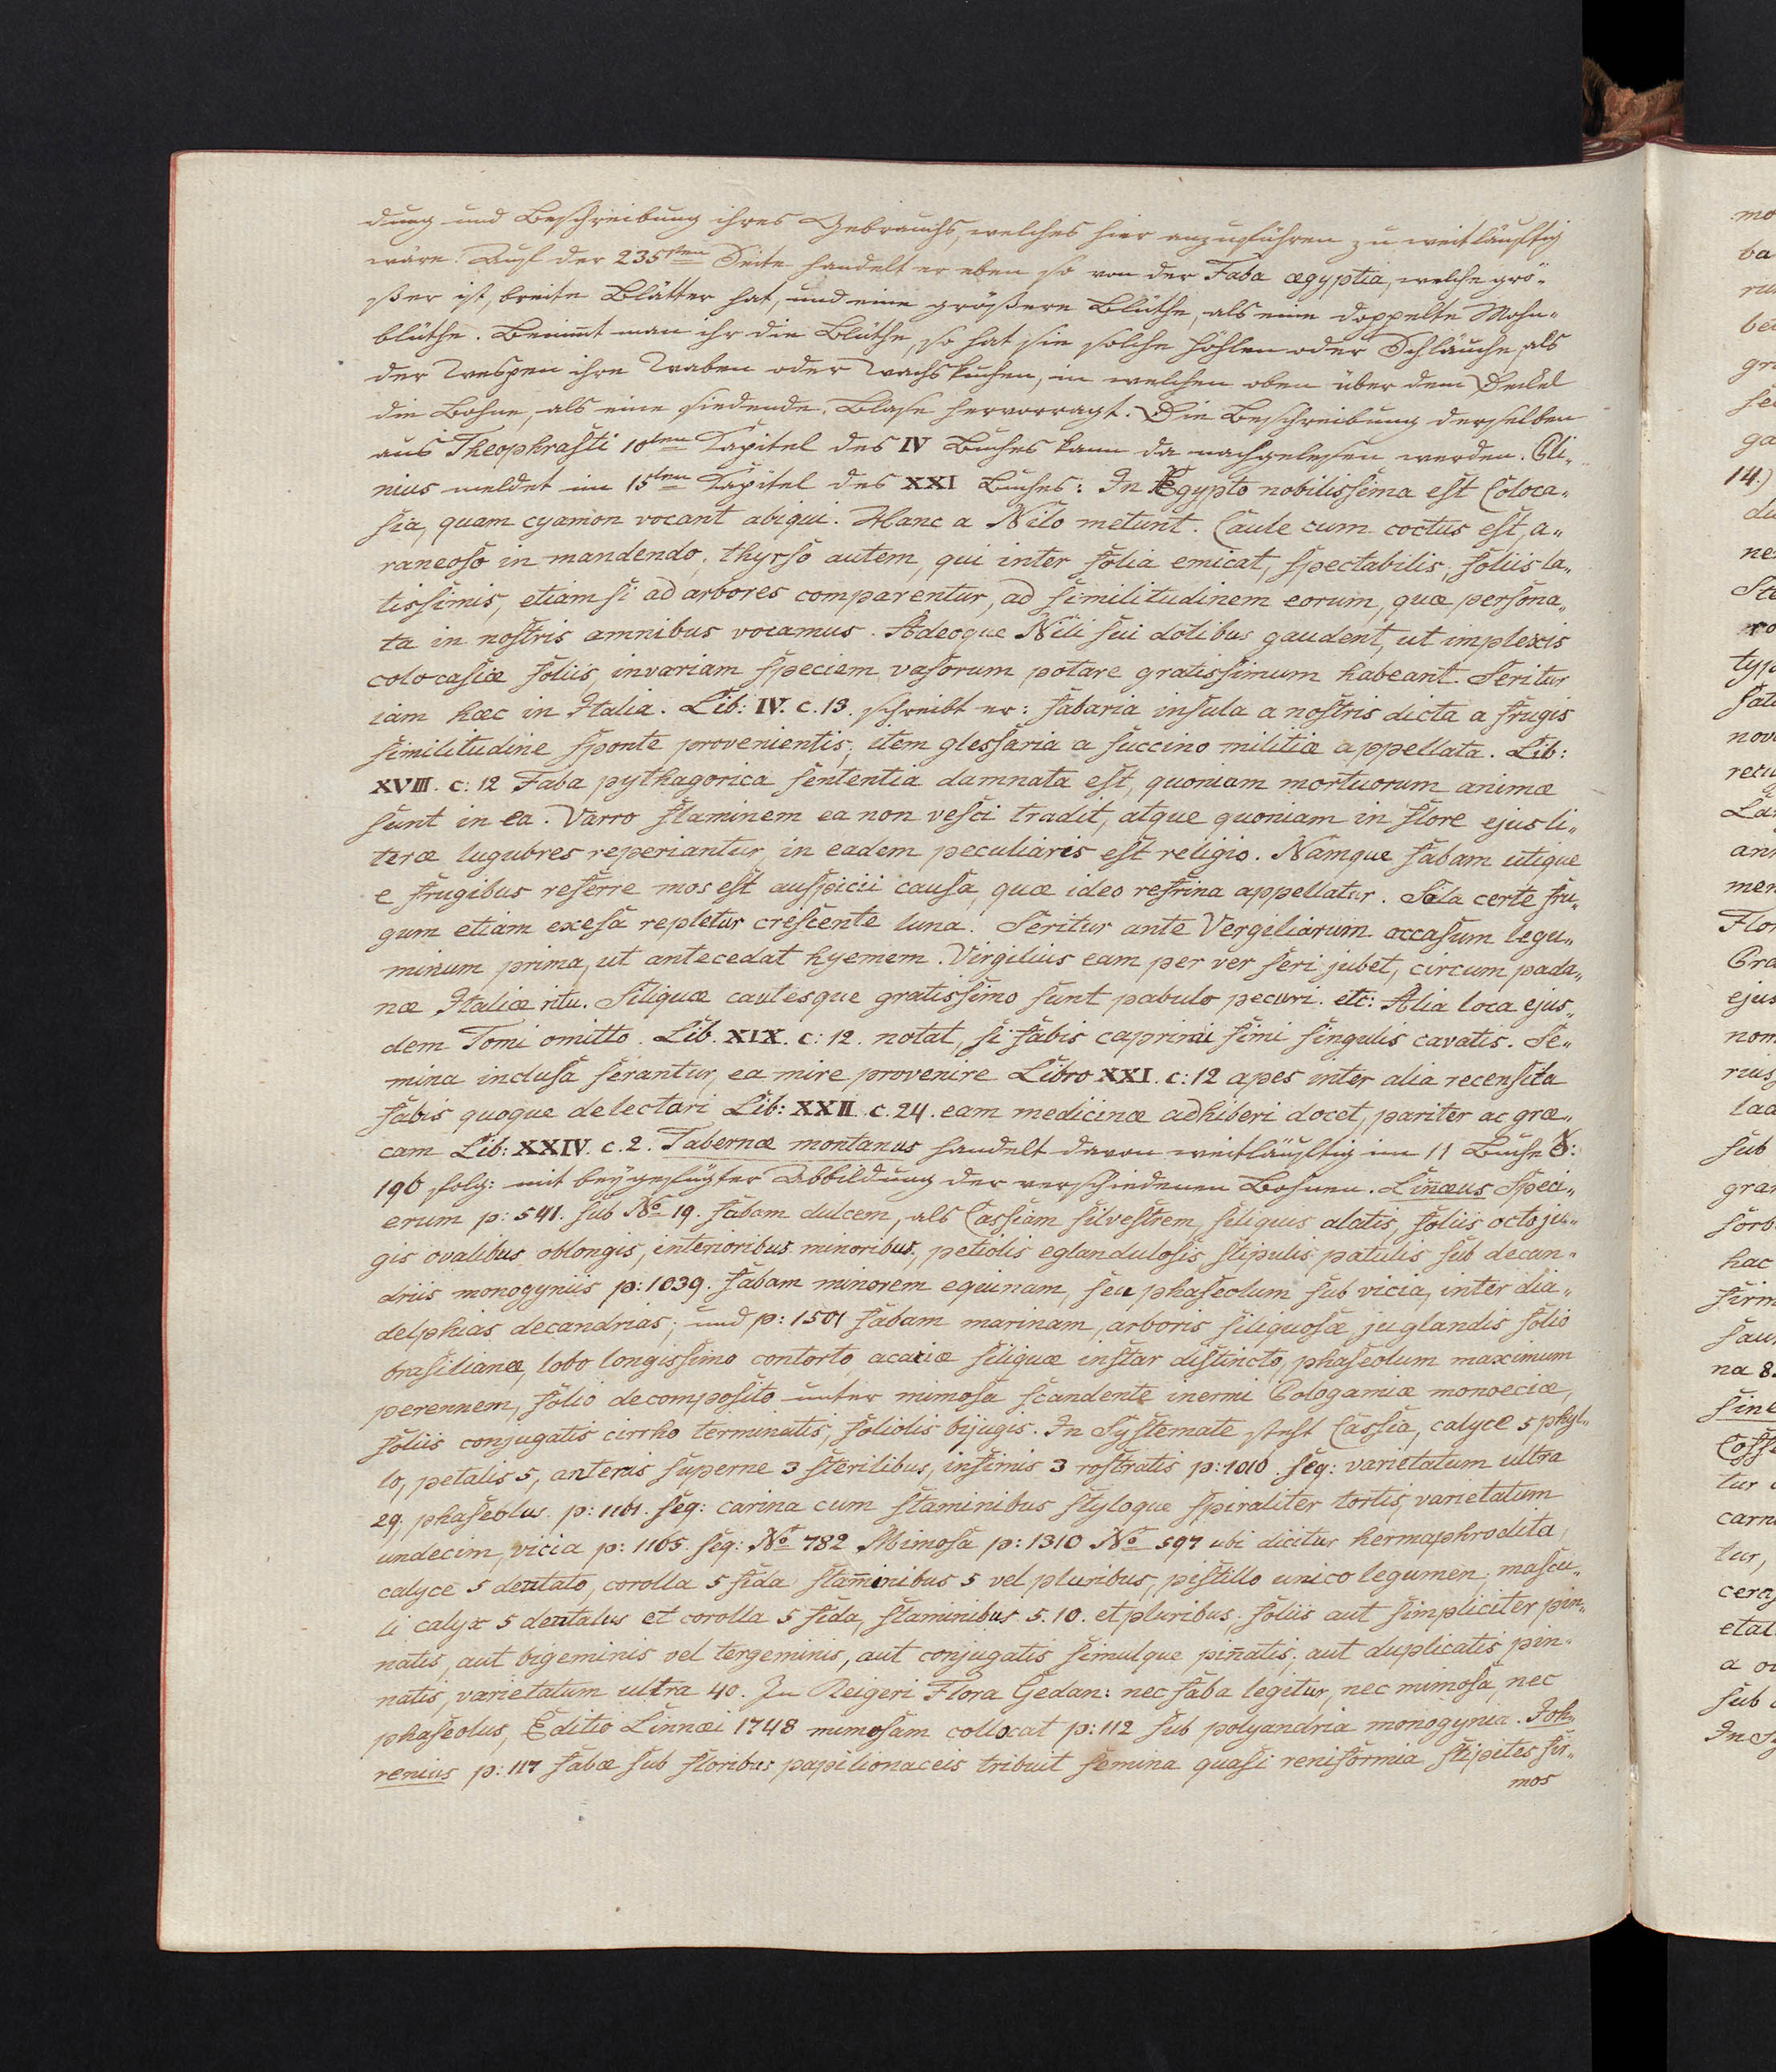 dung und Beschreibung ihres Gebrauchs, welches hier anzuführen zu weitläuftig
wäre. Auf der 235sten Seite handelt er eben so von der Faba ægyptia, welche grö-
ßer ist, breite Blätter hat, und eine größere Blüthe, als eine doppelte Mohn-
blüthe. Benimt man ihr die Blüthe, so hat sie solche Höhlen oder Schläuche, als
der Wespen ihre Waben oder Wachskuchen, in welchen oben über dem Deckel
die Bohne, als eine siedende Blase hervorragt. Die Beschreibung derselben
aus Theophrasti 10ten Capitel des IV Buches kann da nachgelesen werden. Pli-
nius meldet im 15ten Capitel des XXI Buches: In Ægypto nobilissima est Coloca-
sia, quam cyamon vocant aliqui. Hanc a Nilo metunt. Caule cum coctus est, a-
raneoso in mandendo; thyrso autem, qui inter folia emicat, spectabilis, foliis la-
tissimis, etiamsi ad arbores comparentur, ad similitudinem eorum, quæ persona-
ta in nostris amnibus vocamus. Adeoque Nili sui dotibus gaudent, ut implexis
colocasiæ foliis, invariam speciem vasorum potare gratissimum habeant. Seritur
iam hæc in Italia. Lib: IV. c. 13. schreibt er: fabaria insula a nostris dicta a frugis
similitudine sponte provenientis, item glessaria a succino militiæ appellata. Lib:
XVIII. c: 12 Faba pythagorica sententia damnata est, quoniam mortuorum animæ
sunt in ea. Varro flaminem ea non vesci tradit, atque quoniam in flore ejus li-
teræ lugubres reperiantur, in eadem peculiaris est religio. Namque fabam utique
e frugibus referre mos est auspicii causa, quæ ideo refrina appellatur. Sola certe fru-
gum etiam exesa repletur crescente luna. Seritur ante Vergiliarum occasum legu-
minum prima, ut antecedat hyemem. Virgilius eam per ver seri jubet, circum pada-
næ Italiæ ritu. Siliquæ caulesque gratissimo sunt pabulo pecuri. etc: Alia loca ejus-
dem Tomi omitto. Lib. XIX. c: 12. notat, si fabis caprini fimi singulis cavatis. Se-
mina inclusa serantur, ea mire provenire Libro XXI. c: 12 apes inter alia recensita
fabis quoque delectari Lib: XXII c. 24. eam medicinæ adhiberi docet, pariter ac græ-
cam Lib: XXIV. c. 2. Tabernæ montanus handelt davon weitläuftig im 11 Buche S:
196 folg: mit beygefügter Abbildung der verschiedenen Bohnen. Lin̄æus Speci-
erum p: 541. sub No 19. fabam dulcem, als Cassiam silvestrem, siliquis alatis, foliis octoju-
gis ovalibus oblongis, interioribus minoribus, petiolis eglandulosis, stipulis patulis sub decan-
driis monogyniis p: 1039. fabam minorem equinam, seu phaseolum sub vicia, inter dia-
delphias decandrias; und p: 1501 fabam marinam, arboris siliquosæ juglandis folio
brasilianæ, lobo longissimo contorto, acaciæ siliquæ instar distincto, phaseolum maximum
perennem, folio decomposito unter mimosa scandente inermi Pologamiæ monoeciæ,
foliis conjugatis cirrho terminatis, foliolis bijugis. In Systemate steht Cassia, calyce 5 phyl-
lo, petalis 5, anteris superne 3 sterilibus, infimis 3 rostratis p: 1016. seq: varietatum ultra
29; phaseolus p: 1161. seq: carina cum staminibus styloque spiraliter tortis, varietatum
undecim, vicia p: 1165. seq: No 782 Mimosa p: 1310 No 597 ubi dicitur hermaphrodita,
calyce 5 dentato, corolla 5 fida stam̄inibus 5 vel pluribus, pistillo unico legumen; mascu-
li calyx 5 dentalus et corolla 5 fida, staminibus 5. 10. et pluribus; foliis aut simpliciter pin-
natis, aut bigeminis vel tergeminis, aut conjugatis simulque pin̄atis; aut duplicatis pin-
natis, varietatum ultra 40. In Reigeri Flora Gedan: nec faba legitur, nec mimosa, nec
phaseolus, Editio Linnæi 1748 mimosam collocat p: 112 sub polyandria monogynia. Joh-
renius p: 117 fabæ sub floribus papilionaceis tribuit semina quasi reniformia stipites fir-
mos